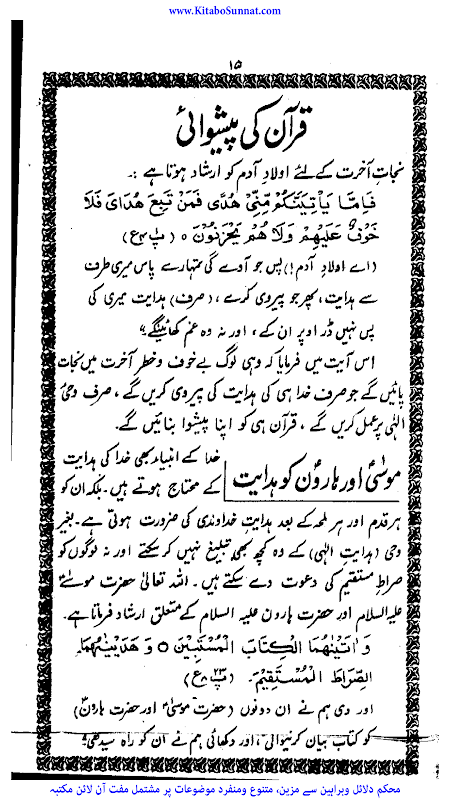 www.KitaboSunnat.com
۱۵
قرآن کی پیشوائی
نجاتِ آخرت کے لئے اولادِ آدم کو ارشاد ہوتا ہے :۔
فَاِمَّا يَأْتِيَنَّكُمْ مِّنِّيْ هُدًى فَمَنْ تَبِعَ هُدَايَ فَلَا
خَوْفٌ عَلَيْهِمْ وَلَا هُمْ يَحْزَنُوْنَ ٥ (پ ع۴)
(اے اولادِ آدم!) پس جو آوے گی تمہارے پاس میری طرف
سے ہدایت، پھر جو پیروی کرے، (صرف) ہدایت میری کی
پس نہیں ڈر اوپر ان کے، اور نہ وہ غم کھائینگے"
اس آیت میں فرمایا کہ وہی لوگ بے خوف و خطر آخرت میں نجات
پائیں گے جو صرف خدا ہی کی ہدایت کی پیروی کریں گے، صرف وحیٔ
الٰہی پر عمل کریں گے، قرآن ہی کو اپنا پیشوا بنائیں گے۔
موسیٰؑ اور ہارونؑ کو ہدایت
خدا کے انبیاء بھی خدا کی ہدایت
کے محتاج ہوتے ہیں۔ بلکہ ان کو
ہر قدم اور ہر لمحہ کے بعد ہدایتِ خداوندی کی ضرورت ہوتی ہے۔ بغیر
وحی (ہدایتِ الٰہی) کے وہ کچھ بھی تبلیغ نہیں کر سکتے اور نہ لوگوں کو
صراطِ مستقیم کی دعوت دے سکتے ہیں۔ اللہ تعالیٰ حضرت موسیٰ
علیہ السلام اور حضرت ہارون علیہ السلام کے متعلق ارشاد فرماتا ہے۔
وَاٰتَيْنٰهُمَا الْكِتَابَ الْمُسْتَبِيْنَ ٥ وَهَدَيْنٰهُمَا
الصِّرَاطَ الْمُسْتَقِيْمَ۔ (پ۲۳ ع۸)
اور دی ہم نے ان دونوں (حضرت موسیٰؑ اور حضرت ہارونؑ)
کو کتاب بیان کرنیوالی، اور دکھائی ہم نے ان کو راہ سیدھی"
محکم دلائل وبراہین سے مزین، متنوع ومنفرد موضوعات پر مشتمل مفت آن لائن مکتبہ